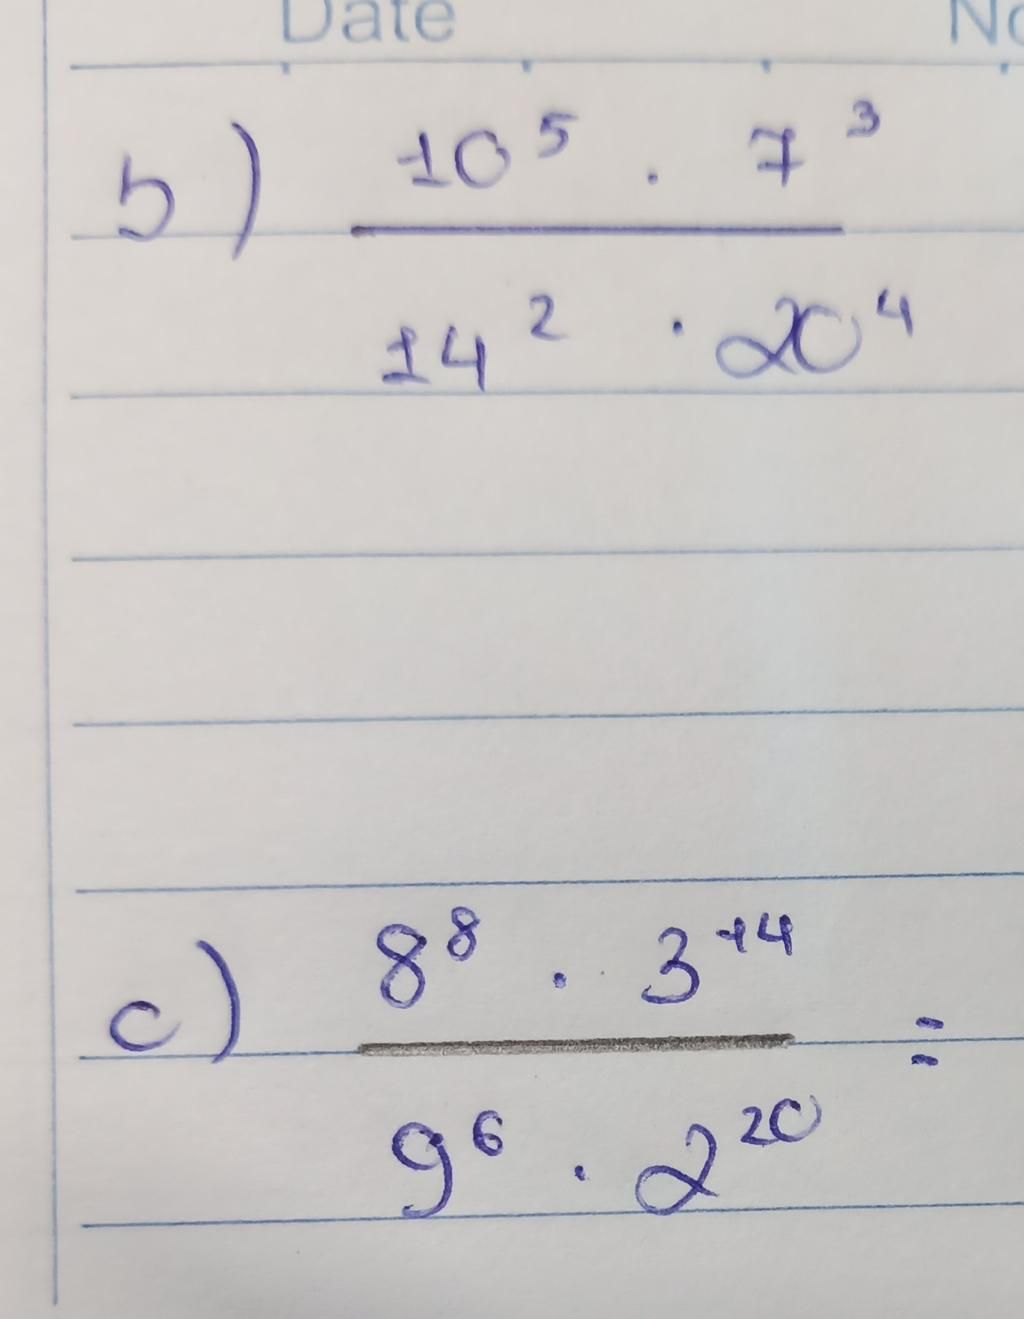 Date
b) 10⁵ . 7³
14² · 20⁴
c) 8⁸ . 3¹⁴ =
9⁶ . 2²⁰